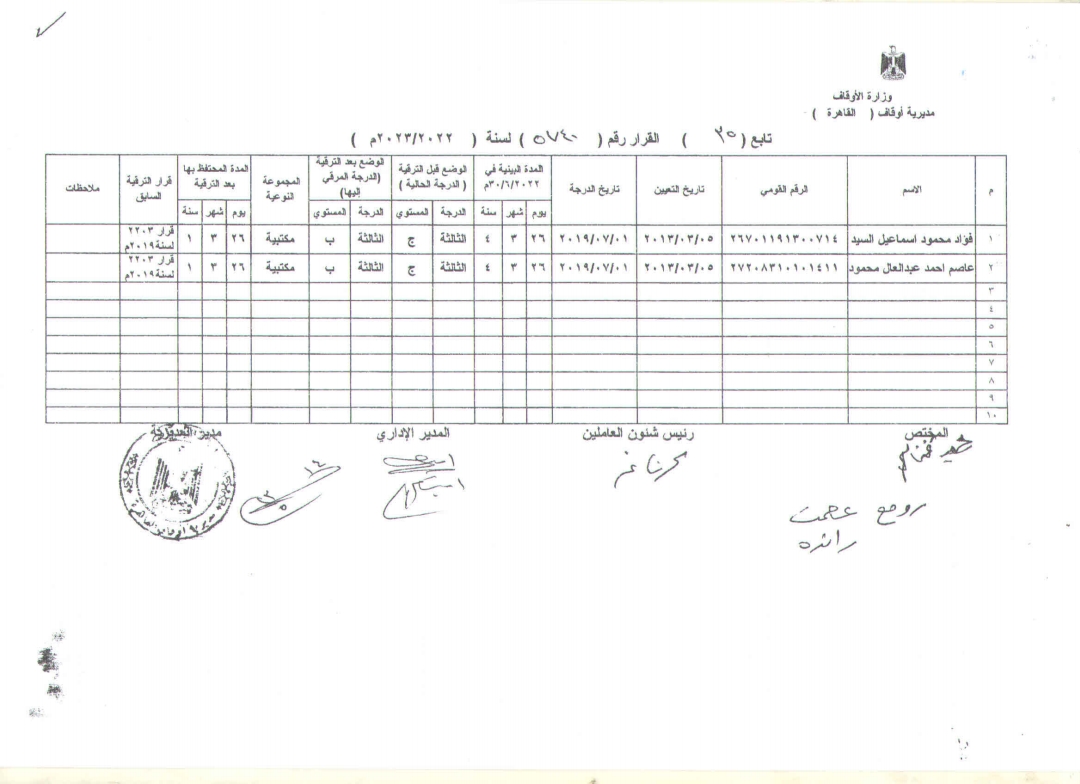 وزارة الأوقاف
مديرية أوقاف ( القاهرة )
تابع ( ٣٥ ) القرار رقم ( ٥٧٤٠ ) لسنة ( ٢٠٢٣/٢٠٢٢م )
م الاسم الرقم القومي تاريخ التعيين تاريخ الدرجة المدة البينية في ٢٠٢٢/٦/٣٠م الوضع قبل الترقية ( الدرجة الحالية ) الوضع بعد الترقية (الدرجة المرقي إليها) المجموعة النوعية المدة المحتفظ بها بعد الترقية قرار الترقية السابق ملاحظات
يوم شهر سنة الدرجة المستوي الدرجة المستوي يوم شهر سنة
١ فؤاد محمود اسماعيل السيد ٢٦٧٠١١٩١٣٠٠٧١٤ ٢٠١٣/٠٣/٠٥ ٢٠١٩/٠٧/٠١ ٢٦ ٣ ٤ الثالثة ج الثالثة ب مكتبية ٢٦ ٣ ١ قرار ٢٢٠٣ لسنة ٢٠١٩م
٢ عاصم احمد عبدالعال محمود ٢٧٢٠٨٣١٠١٠١٤١١ ٢٠١٣/٠٣/٠٥ ٢٠١٩/٠٧/٠١ ٢٦ ٣ ٤ الثالثة ج الثالثة ب مكتبية ٢٦ ٣ ١ قرار ٢٢٠٣ لسنة ٢٠١٩م
٣
٤
٥
٦
٧
٨
٩
١٠
المختص رئيس شئون العاملين المدير الإداري مدير المديرية